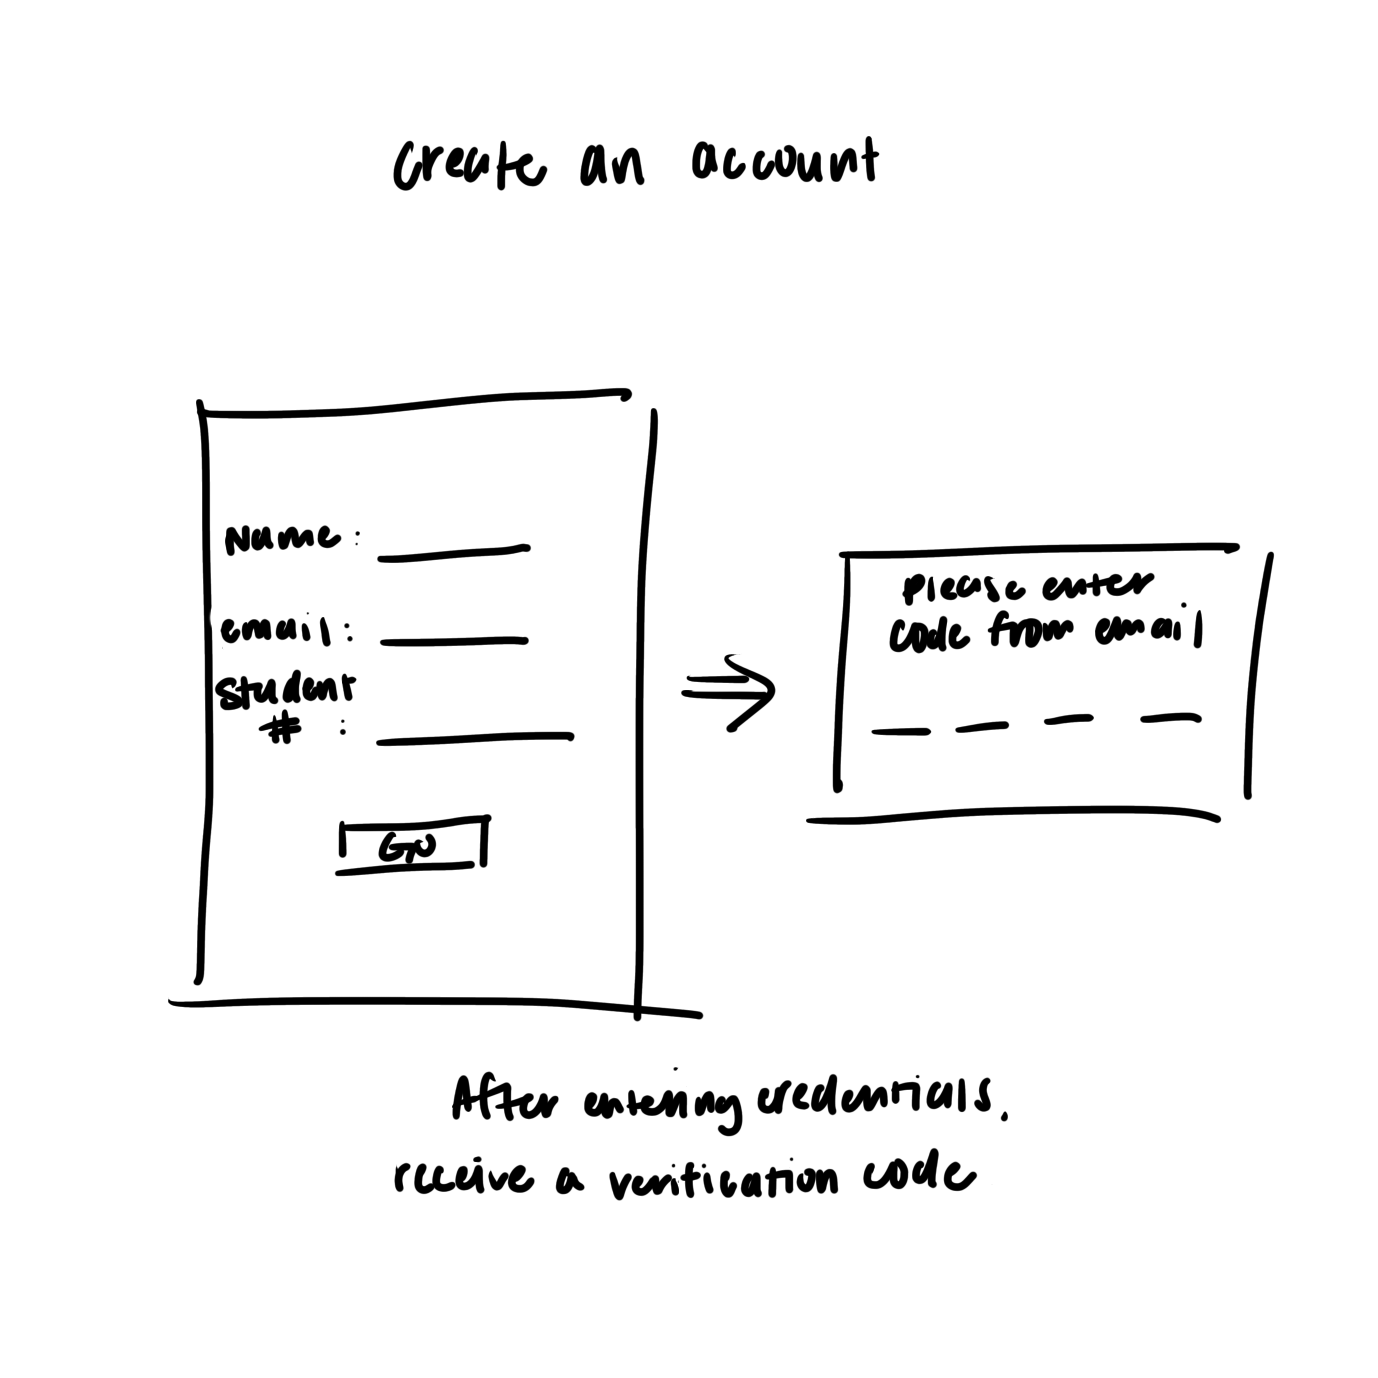 create an account
Name:
email:
Student
# :
Go
Please enter
code from email
After entering credentials.
receive a verification code